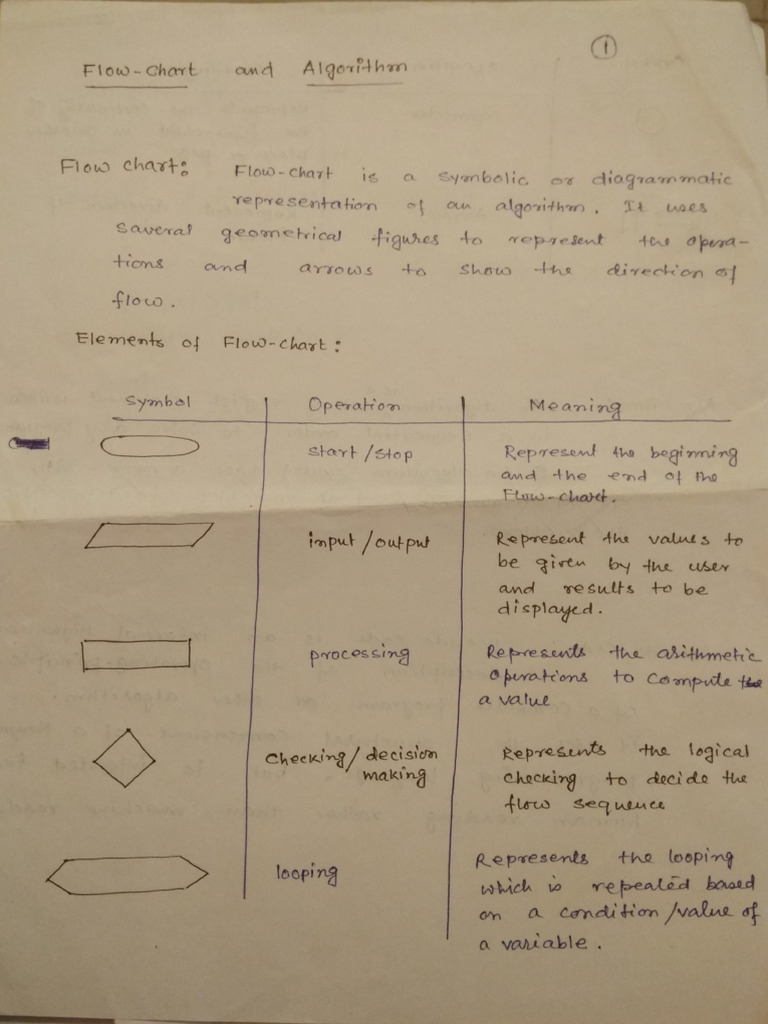 1
Flow-chart and Algorithm
Flow chart: Flow-chart is a symbolic or diagrammatic
representation of an algorithm. It uses
saveral geometrical figures to represent the opera-
tions and arrows to show the direction of
flow.
Elements of Flow-chart:
Symbol Operation Meaning
start/stop Represent the beginning
and the end of the
Flow-chart.
input/output Represent the values to
be given by the user
and results to be
displayed.
processing Represents the arithmetic
operations to compute
a value
checking/decision
making
Represents the logical
checking to decide the
flow sequence
looping Represents the looping
which is repeated based
on a condition/value of
a variable.